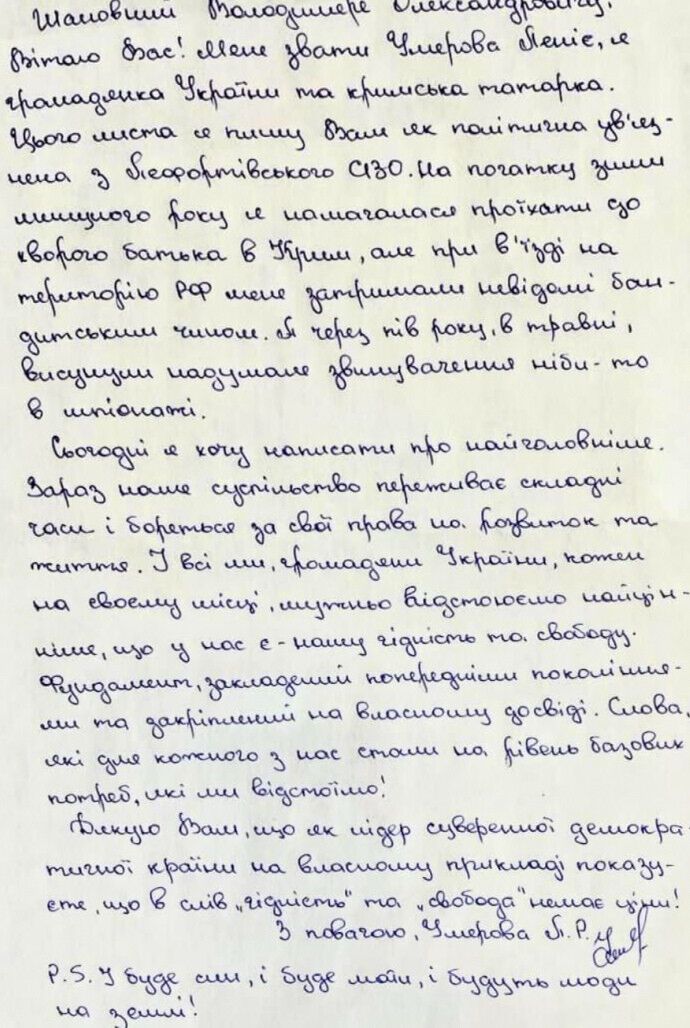 Шановний Володимире Олександровичу,
Вітаю Вас! Мене звати Умерова Леніє, я
громадянка України та кримська татарка.
Цього листа я пишу Вам як політична ув'яз-
нена з Лефортівського СІЗО. На початку зими
минулого року я намагалася проїхати до
хворого батька в Крим, але при в'їзді на
територію РФ мене затримали невідомі бан-
дитським чином. А через пів року, в травні,
висунули надумане звинувачення ніби-то
в шпіонажі.
Сьогодні я хочу написати про найголовніше.
Зараз наше суспільство переживає складні
часи і бореться за свої права на розвиток та
життя. І всі ми, громадяни України, кожен
на своєму місці, мужньо відстоюємо найцін-
ніше, що у нас є - нашу гідність та свободу.
Фундамент, закладений попередніми покоління-
ми та закріплений на власному досвіді. Слова,
які для кожного з нас стали на рівень базових
потреб, які ми відстоїмо!
Дякую Вам, що як лідер суверенної демокра-
тичної країни на власному прикладі показу-
єте, що в слів „гідність" та „свобода" немає ціни!
З повагою, Умерова Л. Р.
P.S. І буде син, і буде мати, і будуть люди
на землі!